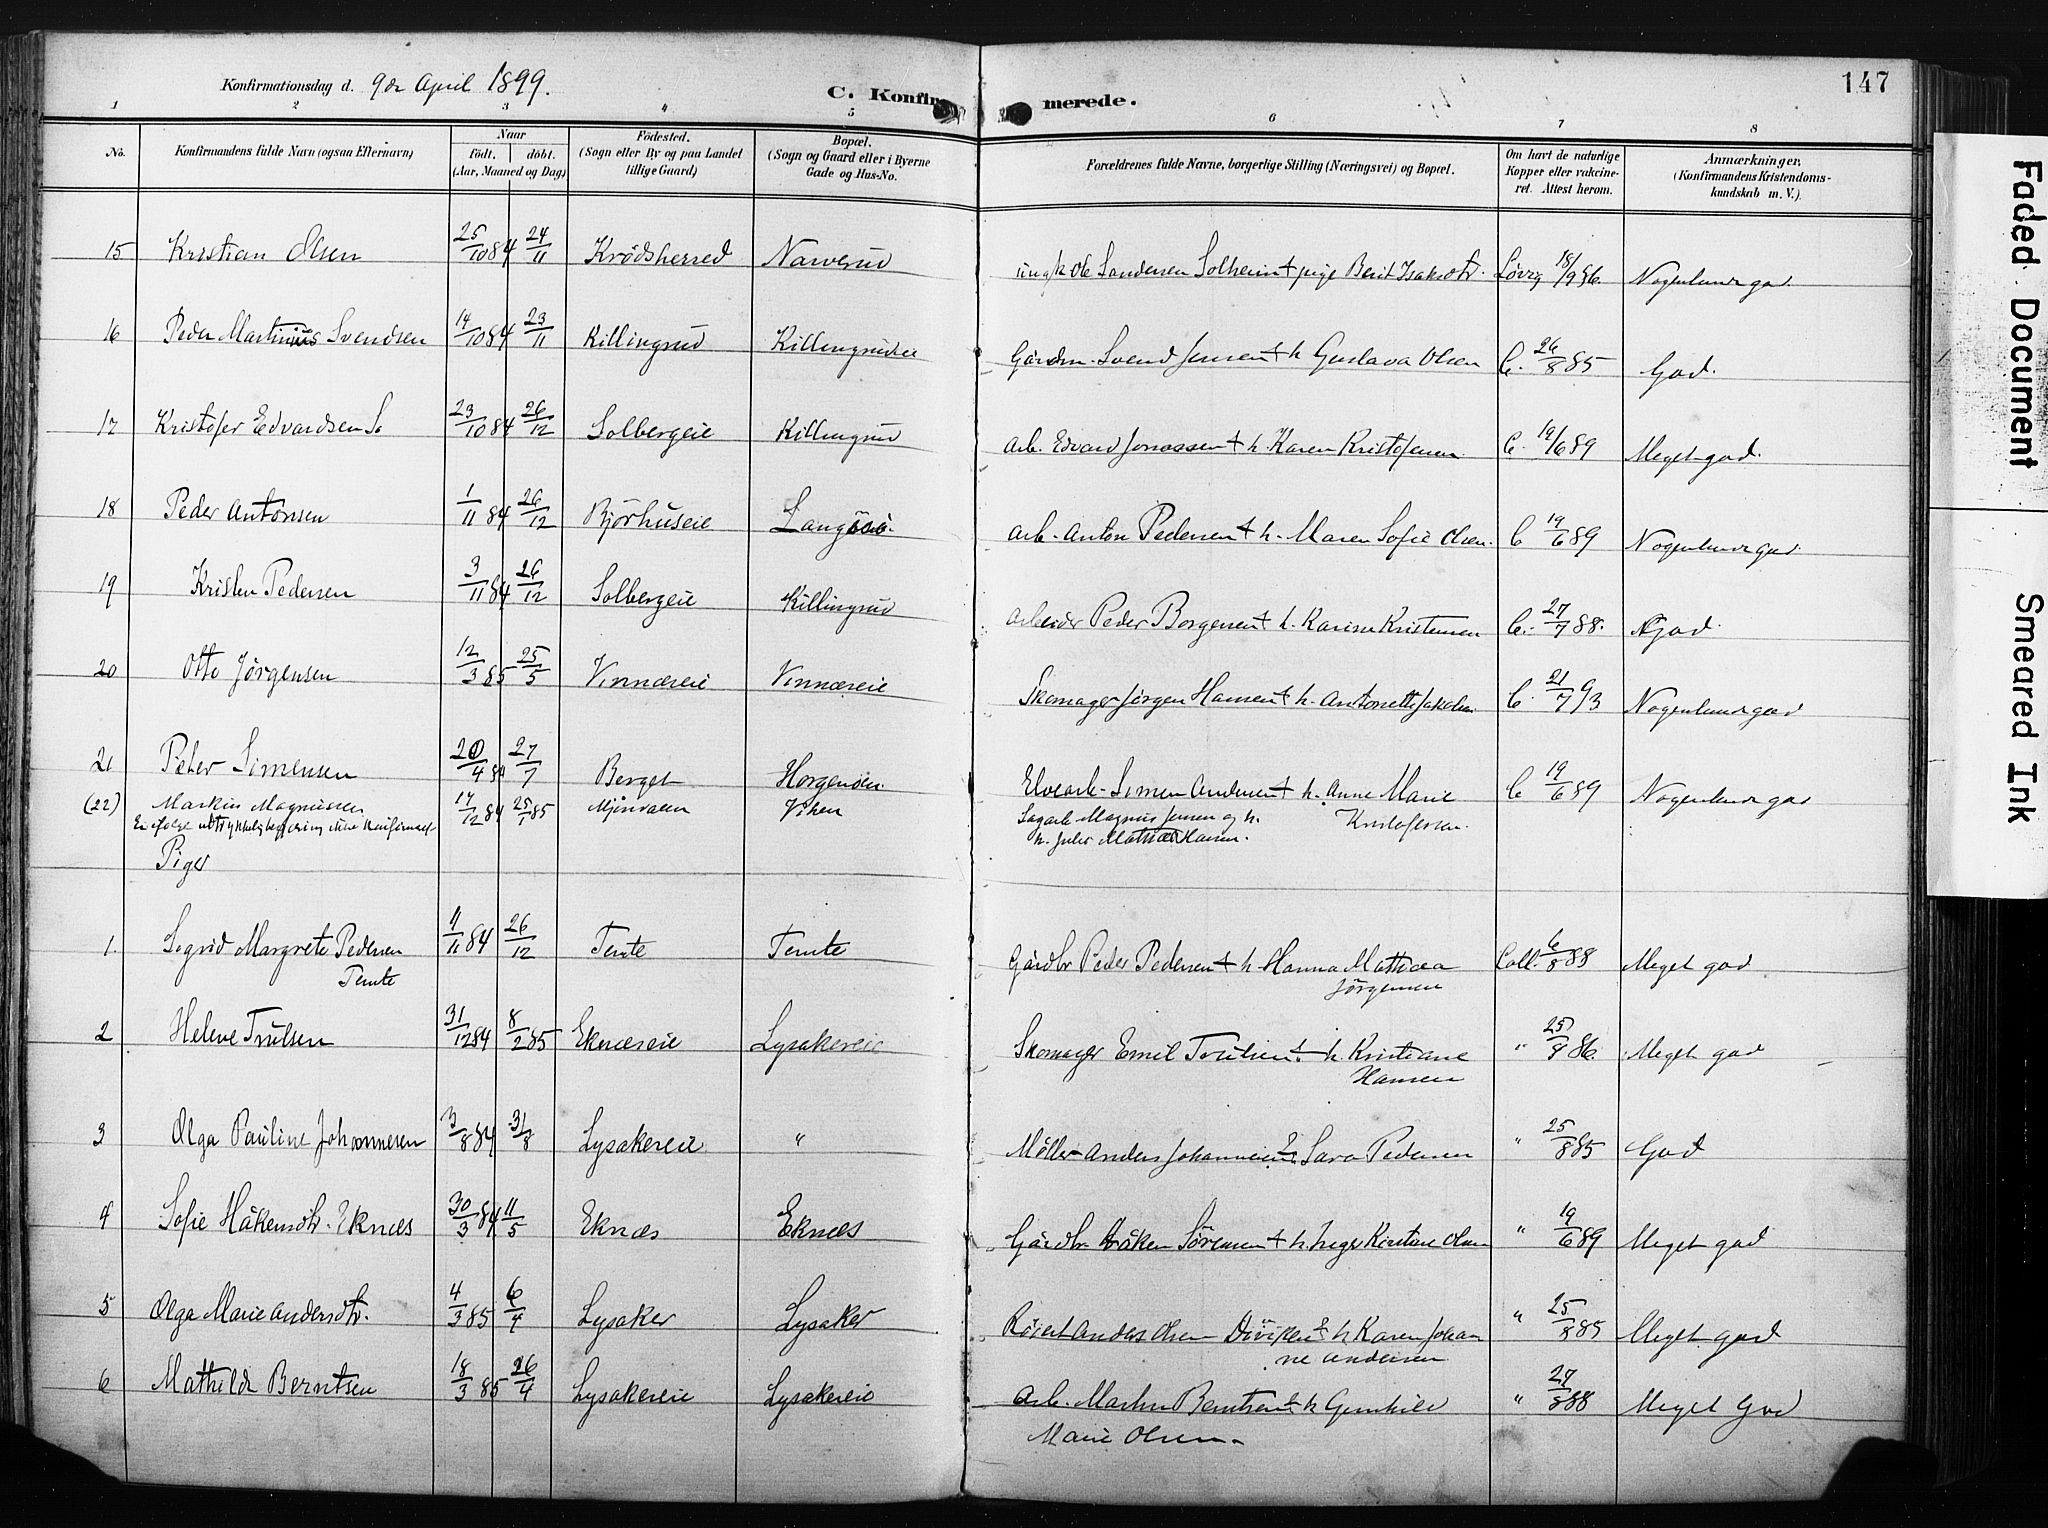 Konfirmationsdag d. 9de April 1899.
C. Konfirmerede.
147
1 2 3 4 5 6 7 8
No.
Konfirmandens fulde Navn (ogsaa Efternavn)
Naar
födt. döbt.
(Aar, Maaned og Dag)
Födested.
(Sogn eller By og paa Landet
tillige Gaard)
Bopæl.
(Sogn og Gaard eller i Byerne
Gade og Hus-No.
Forældrenes fulde Navne, borgerlige Stilling (Næringsvei) og Bopæl.
Om havt de naturlige
Kopper eller vakcine-
ret. Attest herom.
Anmærkninger.
(Konfirmandens Kristendoms-
kundskab m. V.)
15 Kristian Olsen 25/10 84 24/11 Krødsherred Narverud ungk Ole Sandersen Solheim + pige Berit Isaksdtr. Løvig 18/9 86. Nogenlunde god.
16 Peder Martinius Svendsen 14/10 84 23/11 Killingrud Killingrudeie Gårdm. Svend Jensen + h. Gustava Olsen C. 26/8 85 God.
17 Kristofer Edvardsen So 23/10 84 26/12 Solbergeie Killingrud Arb. Edvard Jonassen + h. Karen Kristofersen C. 19/6 89 Meget god.
18 Peder Antonsen 1/11 84 26/12 Bjørhuseie Arb. Anton Pedersen + h. Maren Sofie Olsen. C 19/6 89 Nogenlunde god.
19 Kristen Pedersen 3/11 84 26/12 Solbergeie Killingrud Arbeider Peder Borgersen + h. Karine Kristensen C. 27/7 88. God.
20 Otto Jørgensen 12/3 85 25/5 Vinnæseie Vinnæseie Skomager Jørgen Hansen + h. Antonette Jakobsen C. 21/7 93 Nogenlunde god
21 Peter Simensen 20/4 84 27/7 Berget Horgensøen Elvearb. Simen Andersen + h. Anne Marie C 19/6 89 Nogenlunde god
Kristofersen.
(22) Markus Magnussen 14/12 84 25/1 85 Mjøndalen Viken Sagarb. Magnus Jensen og h.
h. Julie Mathea Hansen.
Piger
1. Sigrid Margrete Pedersen 1/11 84 26/12 Temte Temte Gårdbr Peder Pedersen + h. Hanna Mathea Coll. 6/8 88 Meget god
Temte Jörgensen
2 Helene Trulsen 31/12 84 8/2 85 Eknæseie Lysakereie Skomager Emil Trulsen + h. Kristiane " 25/8 86. Meget god
Hansen
3 Olga Pauline Johannesen 3/8 84 31/8 Lysakereie " Møller Anders Johannesen & Sara Pedersen " 25/8 85 God
4 Sofie Håkensdtr. Eknæs 30/3 84 11/5 Eknæs Eknæs Gårdbr. Håken Sørensen + h. Inger Kirstine Olsen " 19/6 89 Meget god
5 Olga Marie Andersdtr. 4/3 85 6/4 Lysaker Lysaker Anders Olsen & h. Karen Johan " 25/8 85 Meget god
ne Andersen
6 Mathilde Berntsen 18/3 85 26/4 Lysakereie Lysakereie Arb. Martin Berntsen + h. Gunhild " 29/8 88 Meget God
Marie Olsen.
Faded Document
Smeared Ink